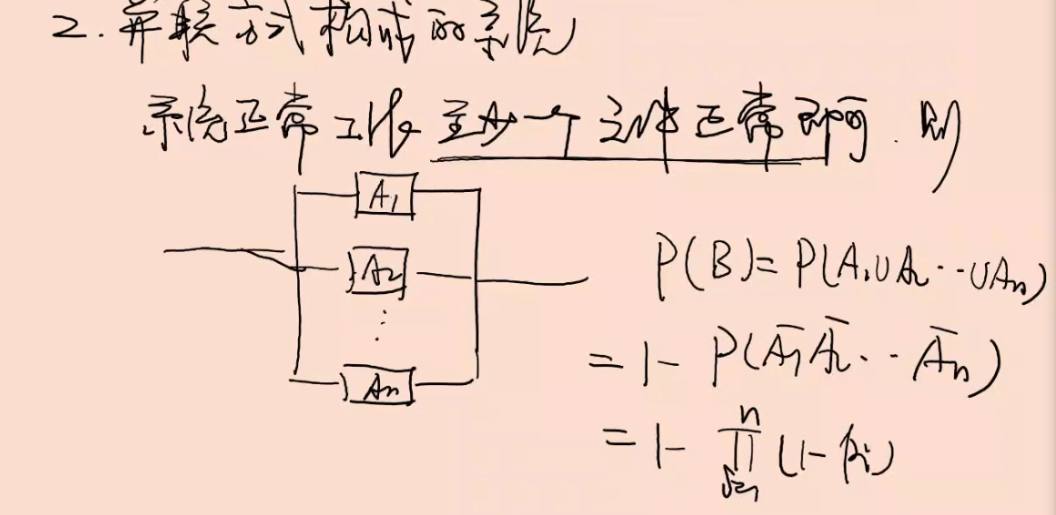 2. 并联方式构成的系统
系统正常工作至少一个元件正常即可. 则
A₁
A₂
⋮
Aₙ
P(B)= P(A₁∪A₂⋯∪Aₙ)
= 1- P(A̅₁A̅₂⋯A̅ₙ)
= 1- ∏ⁿᵢ₌₁ (1-pᵢ)